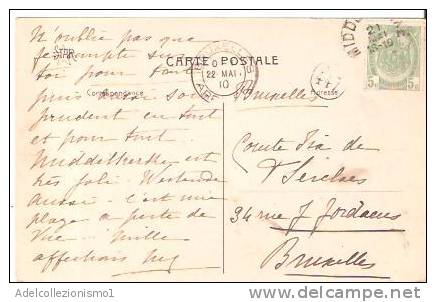 N'oublie pas que
je compte sur
toi pour tout
sois
prudent en tout
et pour tout.
Middelkerke est
très joli Westende
aussi - c'est une
plage à perte de
vue - mille
affections
STAR
CARTE POSTALE
Correspondance
Adresse
BRUXELLES
22 MAI
10
MIDDEL
21
5c 5c
Bruxelles
Comte Pia de
T'Serclaes
34 rue J Jordaens
Bruxelles
Adelcollezionismo1
delcampe.net